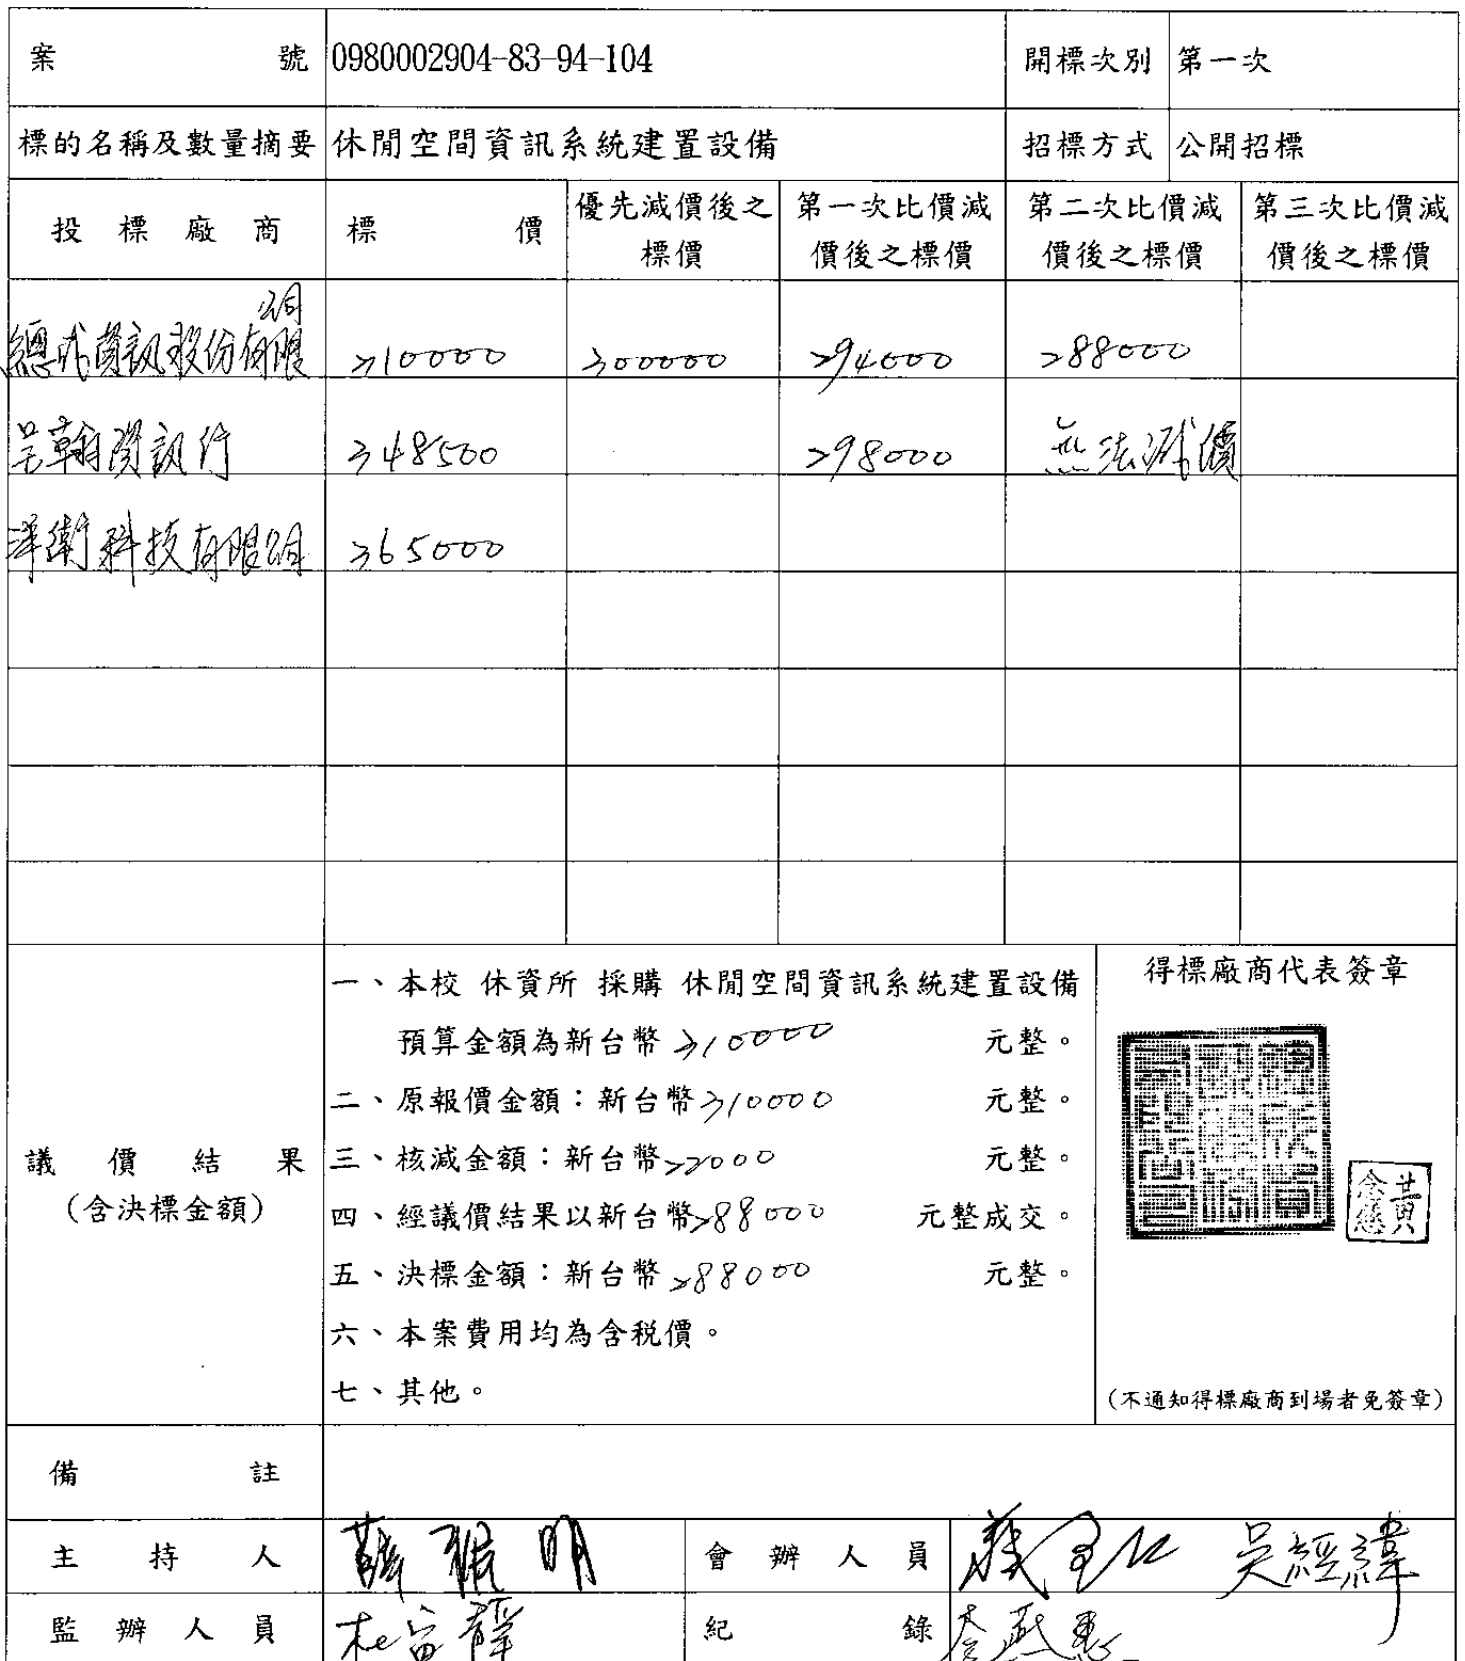 案號 0980002904-83-94-104 開標次別 第一次
標的名稱及數量摘要 休閒空間資訊系統建置設備 招標方式 公開招標
投標廠商 標價 優先減價後之標價 第一次比價減價後之標價 第二次比價減價後之標價 第三次比價減價後之標價
總成資訊股份有限公司 310000 300000 294000 288000
呈翰資訊行 348500 298000 無法減價
洋衛科技有限公司 365000
議價結果
(含決標金額)
一、本校 休資所 採購 休閒空間資訊系統建置設備
預算金額為新台幣 310000 元整。
二、原報價金額：新台幣 310000 元整。
三、核減金額：新台幣 22000 元整。
四、經議價結果以新台幣 288000 元整成交。
五、決標金額：新台幣 288000 元整。
六、本案費用均為含税價。
七、其他。
得標廠商代表簽章
(不通知得標廠商到場者免簽章)
備註
主持人 會辦人員 吳經緯
監辦人員 紀錄